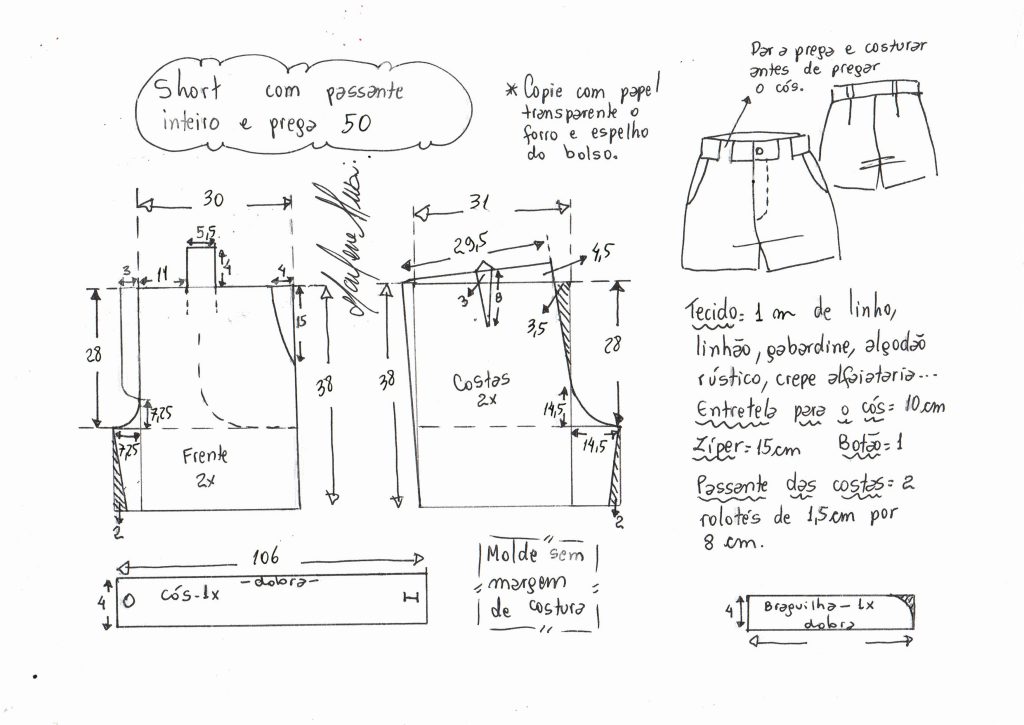 Short com passante
inteiro e prega 50
* Copie com papel
transparente o
forro e espelho
do bolso.
Dar a prega e costurar
antes de pregar
o cós.
30
5,5
3
11
4
4
15
28
38
7,25
7,25
Frente
2x
2
31
29,5
4,5
3
8
3,5
38
28
Costas
2x
14,5
14,5
2
Tecido= 1 m de linho,
linhão, gabardine, algodão
rústico, crepe alfaiataria...
Entretela para o cós= 10 cm
Zíper= 15cm Botão= 1
Passante das costas= 2
rolotés de 1,5cm por
8 cm.
106
-dobra-
4
cós-1x
Molde sem
margem
de costura
4
Braguilha-1x
dobra